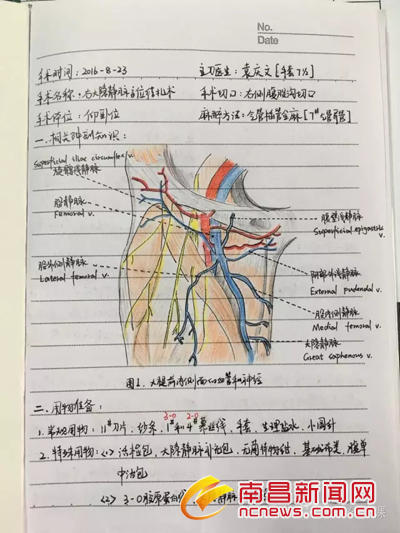 No.
Date
手术时间：2016-8-23 主刀医生：袁庆文[手套7½]
手术名称：右大隐静脉高位结扎术 手术切口：右侧腹股沟切口
手术体位：仰卧位 麻醉方法：全管插管全麻[7#气管]
一.相关解剖知识：
Superficial iliac circumflex v.
旋髂浅静脉
股静脉
Femoral v.
股外侧静脉
Lateral femoral v.
腹壁浅静脉
Superficial epigastric v.
阴部外浅静脉
External pudendal v.
股内侧静脉
Medial femoral v.
大隐静脉
Great saphenous v.
图1.大腿前内侧面的血管和神经
二.用物准备：
3-0 2-0
1.常规用物：11#刀片、纱条、1#和4#慕丝线、手套、生理盐水、小圆针
2.特殊用物：<1>清创包、大隐静脉补充包、无菌持物钳、基础布类、腹单
中治包
<2> 3-0胶原蛋白线
南昌新闻网
ncnews.com.cn